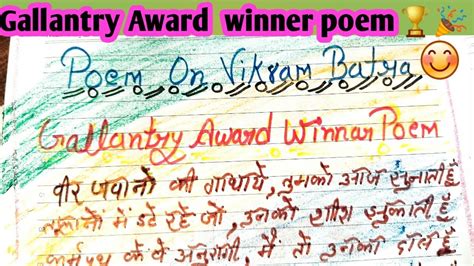 Gallantry Award winner poem 🏆🎉😊
Poem On Vikram Batra
Gallantry Award Winnar Poem
वीर जवानों की गाथायें, तुमको आज सुनाती हूँ
में डटे रहें जो, उनको शीश झुकाती हूँ
कर्मपथ के वे अनुरागी, मैं तो उनकी